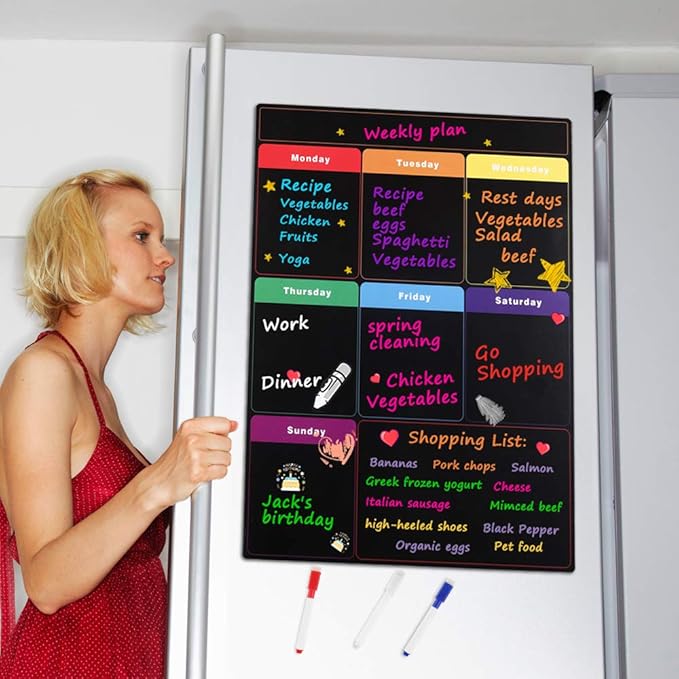 Weekly plan
Monday
Recipe
Vegetables
Chicken
Fruits
Yoga
Tuesday
Recipe
beef
eggs
Spaghetti
Vegetables
Wednesday
Rest days
Vegetables
Salad
beef
Thursday
Work
Dinner
Friday
spring
cleaning
Chicken
Vegetables
Saturday
Go
Shopping
Sunday
Jack's
birthday
Shopping List:
Bananas Pork chops Salmon
Greek frozen yogurt Cheese
Italian sausage Mimced beef
high-heeled shoes Black Pepper
Organic eggs Pet food